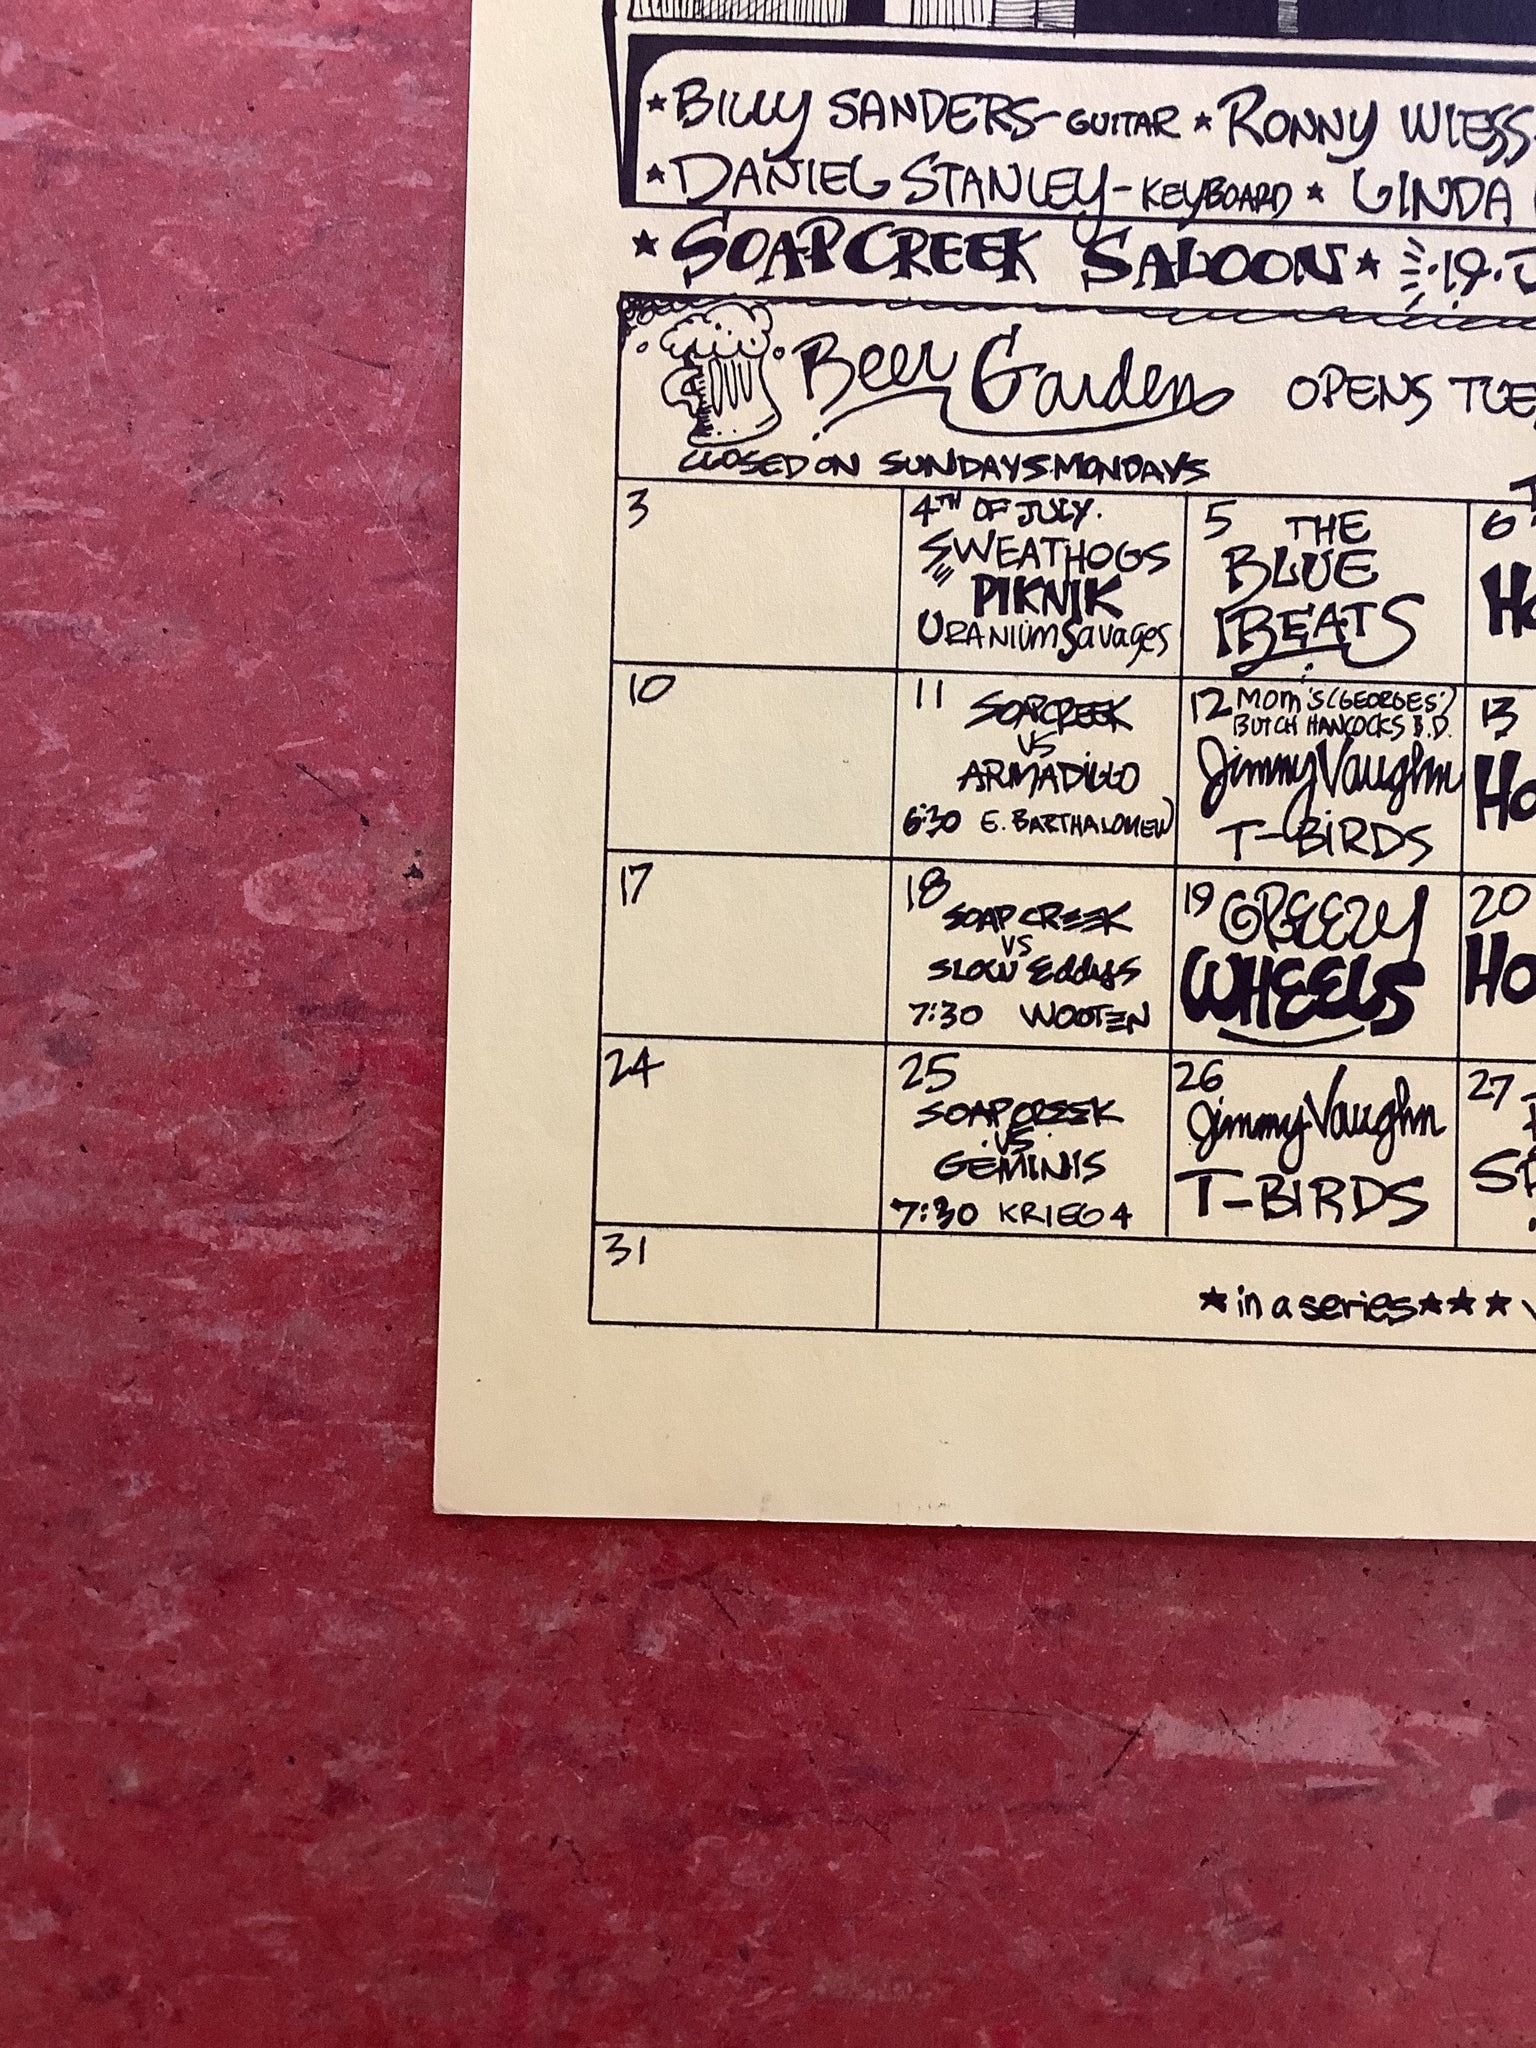 ★ BILLY SANDERS-GUITAR ★ RONNY WIESS
★ DANIEL STANLEY-KEYBOARD ★ LINDA
★ SOAPCREEK SALOON ★ 19.
Beer Garden OPENS TUE
CLOSED ON SUNDAYS·MONDAYS
3
4TH OF JULY.
SWEATHOGS
PIKNIK
URANIUM Savages
5 THE
BLUE
BEATS
6
HO
10
11 SOAPCREEK
VS
ARMADILLO
6:30 E. BARTHALOMEW
12 MOM'S (GEORGES')
BUTCH HANCOCKS B.D.
Jimmy Vaughn
T-BIRDS
13
HO
17
18
SOAP CREEK
VS
SLOW Eddys
7:30 WOOTEN
19 GREEZY
WHEELS
20
HO
24
25
SOAPCREEK
.VS.
GEMINIIS
7:30 KRIEG 4
26
Jimmy Vaughn
T-BIRDS
27
SP
31
★ in a series ★★★